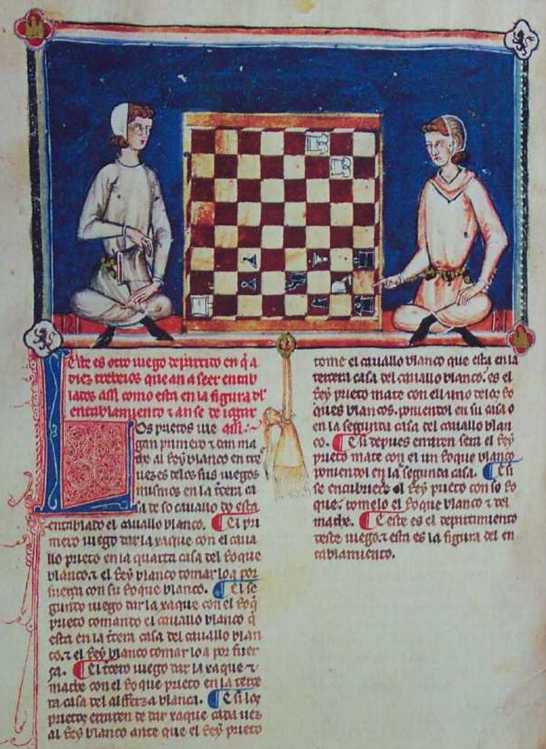 Este es otro iuego departido en q̃ a
diez trebeios que an a seer entab
lados assi como esta en la figura del
entablamiento ⁊ an se de iogar
assi.
Los prietos iue
gan primero ⁊ dan ma
te al Rey blanco en tre
uez es delos sus iuegos
mismos en la tercera ca
sa de so cauallo do esta
entablado el cauallo blanco. El pri
mero iuego dar la xaque con el caua
llo prieto en la quarta casa del Roque
blanco. ⁊ el Rey blanco tomar lo a por
fuerça con su Roque blanco. El se
gundo iuego dar la xaque con el Roq̃
prieto tomando el cauallo blanco q̃
esta en la tercera casa del cauallo blan
co. ⁊ el Rey blanco tomar lo a por fuer
ça. El tercero iuego dar la xaque ⁊
mathe con el Roque prieto en la terce
ra casa del alfferza blanca. E si los
prietos erraren de dar xaque cada uez
al Rey blanco ante que el Rey prieto
tome el cauallo blanco que esta en la
tercera casa del cauallo blanco. es el
Rey prieto mate con el uno delos Ro
ques blancos. poniendol en su casa o
en la segunda casa del cauallo blan
co. E si depues entrare sera el Rey
prieto mate con el un Roque blanco
poniendol en la segunda casa. E si
se encubriere el Rey prieto con so Ro
que. tomelo el Roque blanco ⁊ del
mathe. E este es el departimiento
deste iuego. ⁊ esta es la figura del en
tablamiento.